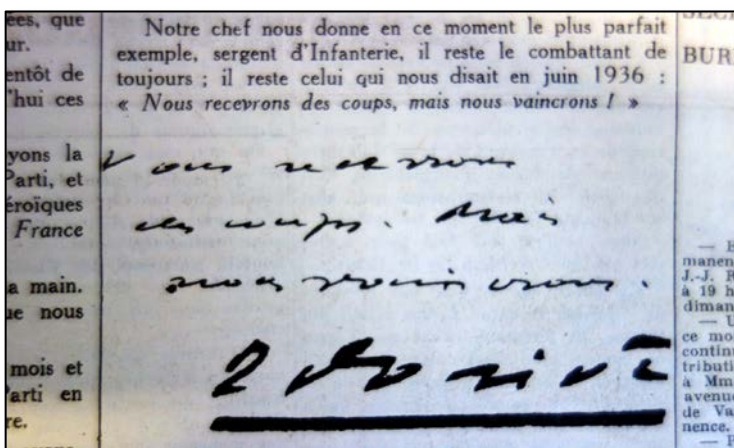 ées, que
ur.
entôt de
'hui ces
yons la
Parti, et
éroïques
France
a main.
ue nous
mois et
Parti en
re.
Notre chef nous donne en ce moment le plus parfait
exemple, sergent d'Infanterie, il reste le combattant de
toujours ; il reste celui qui nous disait en juin 1936 :
« Nous recevrons des coups, mais nous vaincrons ! »
Nous recevrons
des coups. Mais
nous vaincrons.
J Doriot
BUR
— E
manen
J.-J. R
à 19 h
diman
— U
ce mo
contin
tributi
à Mm
avenue
de Va
nence.